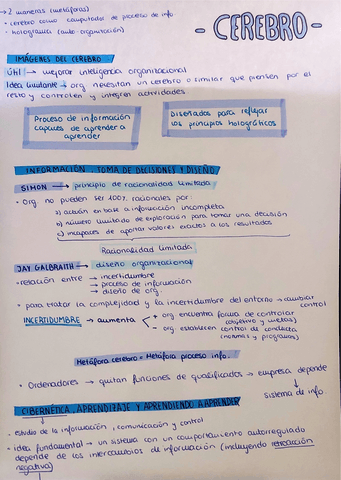 → 2 maneras (metáforas)
• cerebro como computador de proceso de info
• holograma (auto organización)
- CEREBRO -
IMÁGENES DEL CEREBRO
ÚHI → mejorar inteligencia organizacional
Idea limitante → org necesitan un cerebro o similar que piensen por el
resto y controlen y integren actividades
Proceso de información
capaces de aprender a
aprender
Diseñados para reflejar
los principios holográficos
INFORMACIÓN, TOMA DE DECISIONES Y DISEÑO
SIMON → principio de racionalidad limitada
• Org. no pueden ser 100% racionales por:
a) actúan en base a información incompleta
b) número limitado de exploración para tomar una decisión
c) incapaces de aportar valores exactos a los resultados
Racionalidad limitada
JAY GALBRAITH → diseño organizacional
• relación entre → incertidumbre
→ proceso de información
→ diseño de org.
• para tratar la complejidad y la incertidumbre del entorno → cambiar
control
INCERTIDUMBRE → aumenta
+ org encuentra forma de controlar
(objetivo y metas)
- org. establecen control de conducta
(normas y programas)
Metáfora cerebro = Metáfora proceso info.
• Ordenadores → quitan funciones de cualificados → empresa depende
↓
Sistema de info.
CIBERNÉTICA, APRENDIZAJE Y APRENDIENDO A APRENDER
estudio de la información, comunicación y control
• idea fundamental → un sistema con un comportamiento autorregulado
depende de los intercambios de información (incluyendo retroacción
negativa)